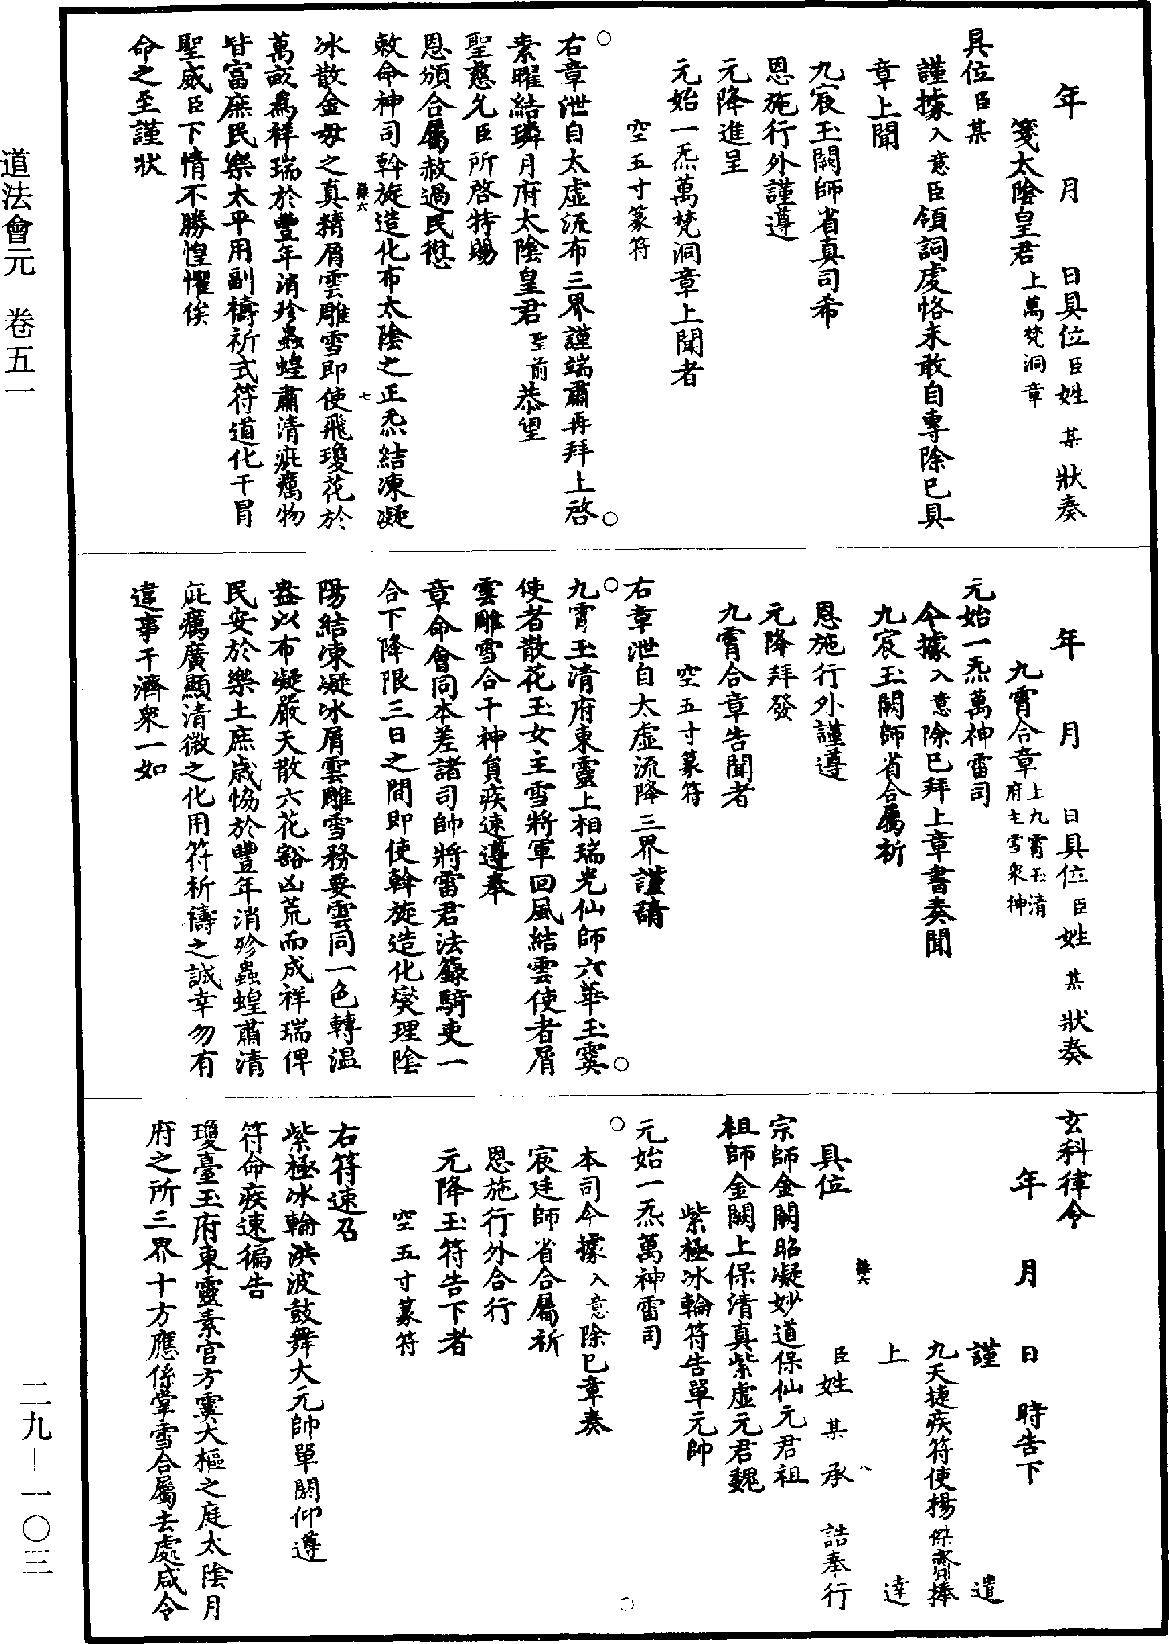 年　月　日具位臣姓某狀奏
箋太陰皇君上萬梵洞章
具位臣某
謹據入意臣領詞虔恪未敢自專除已具
章上聞
九宸玉闕師省真司希
恩施行外謹遵
元降進呈
元始一炁萬梵洞章上聞者
空五寸篆符
右章泄自太虛流布三界謹端肅再拜上啓
素曜結璘月府太陰皇君聖前恭望
聖慈允臣所啓特賜
恩頒合屬赦過民愆
敕命神司斡旋造化布太陰之正炁結凍凝
冰散金母之真精屑雲雕雪即使飛瓊花於
萬畝為祥瑞於豐年消殄蟲蝗肅清疵癘物
皆富庶民樂太平用副禱祈式符道化干冒
聖威臣下情不勝惶懼俟
命之至謹狀
年　月　日具位臣姓某狀奏
九霄合章上九霄玉清府主雪眾神
元始一炁萬神雷司
今據入意除已拜上章書奏聞
九宸玉闕師省合屬祈
恩施行外謹遵
元降拜發
九霄合章告聞者
空五寸篆符
右章泄自太虛流降三界謹請
九霄玉清府東靈上相瑞光仙師六華玉霙
使者散花玉女主雪將軍回風結雲使者屑
雲雕雪合干神員疾速遵奉
章命會同本差諸司帥將雷君法籙騎吏一
合下降限三日之間即使斡旋造化燮理陰
陽結凍凝冰屑雲雕雪務要雲同一色轉溫
盎以布凝嚴天散六花豁凶荒而成祥瑞俾
民安於樂土庶歲恊於豐年消殄蟲蝗肅清
疵癘廣顯清微之化用符祈禱之誠幸勿有
違事干濟衆一如
玄科律令
年　月　日　時告下
謹　遣
九天捷疾符使楊傑齎捧
上　達
具位　臣姓某承　誥奉行
宗師金闕昭凝妙道保仙元君祖
祖師金闕上保清真紫虛元君魏
紫極冰輪符告單元帥
元始一炁萬神雷司
本司今據入意除已章奏
宸廷師省合屬祈
恩施行外合行
元降玉符告下者
空五寸篆符
右符速召
紫極冰輪洪波鼓舞大元帥單闕仰遵
符命疾速徧告
瓊臺玉府東靈素官方霙大樞之庭太陰月
府之所三界十方應係掌雪合屬去處咸令
道法會元　卷五一
二九—一〇三